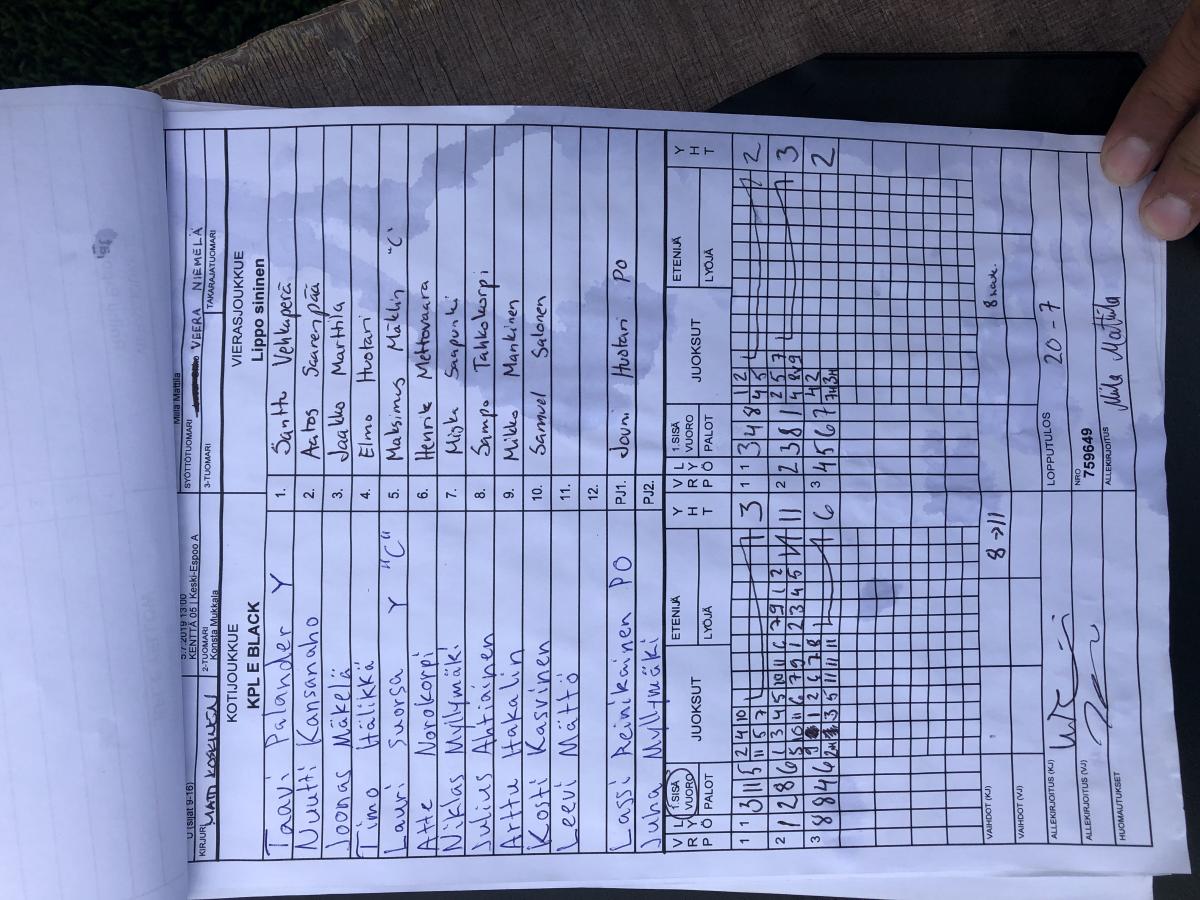 U (sijat 9-16)
5.7.2019 13:00
KENTTÄ 05 | Keski-Espoo A
KIRJURI
MATTI KOSKINEN
2-TUOMARI
Konsta Mukkala
SYÖTTÖTUOMARI
Milla Mattila
3-TUOMARI
VEERA NIEMELÄ
TAKARAJATUOMARI
KOTIJOUKKUE
KPL BLACK
VIERASJOUKKUE
Lippo sininen
Taavi Palander Y 1. Santtu Vehkaperä
Nuutti Kansanaho 2. Aatos Saarenpää
Joonas Mäkelä 3. Jaakko Marttila
Timo Hälikkä 4. Elmo Huotari
Lauri Suorsa Y "C" 5. Maksimus Mäklin "C"
Atte Norokorpi 6. Henrik Mettovaara
Niklas Myllymäki 7. Miska Saapunki
Julius Ahtiainen 8. Sampo Tahkokorpi
Arttu Hakalin 9. Mikko Mankinen
Kosti Kasvinen 10. Samuel Salonen
Leevi Mättö 11.
12.
Lassi Reinikainen PO PJ1. Jouni Huotari PO
Juha Myllymäki PJ2.
V R P L Y Ö 1.SISÄ VUORO PALOT JUOKSUT ETENIJÄ LYÖJÄ Y H T V R P L Y Ö 1.SISÄ VUORO PALOT JUOKSUT ETENIJÄ LYÖJÄ Y H T
1 1 3 11 5 2 4 10 3 1 1 3 4 8 1 2 2
11 5 7 4 5
2 1 2 8 6 1 3 4 5 10 11 6 7 9 1 2 11 2 2 3 8 1 2 5 7 3
5 10 11 6 7 9 1 2 3 4 5 4 8 9
3 8 8 4 6 9 1 2 6 7 8 6 3 4 5 6 7 4 2 2
3 5 11 11 11
VAIHDOT (KJ) 8→11 8 nav.
VAIHDOT (VJ)
ALLEKIRJOITUS (KJ) LOPPUTULOS 20 - 7
ALLEKIRJOITUS (VJ) NRO 759649
HUOMAUTUKSET ALLEKIRJOITUS Milla Mattila